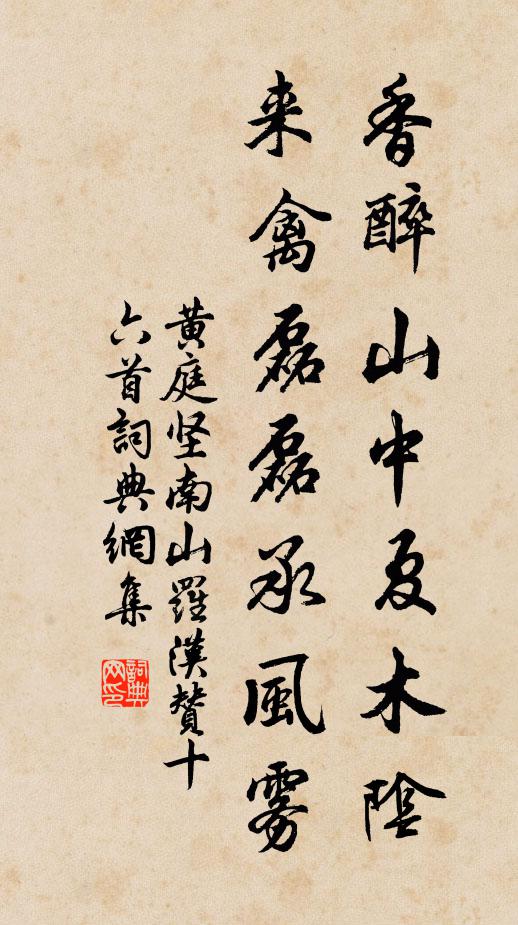 香醉山中夏木陰
来禽磊磊承風雾
黄庭坚南山羅漢贊十
六首詞典網集
詞典
网印